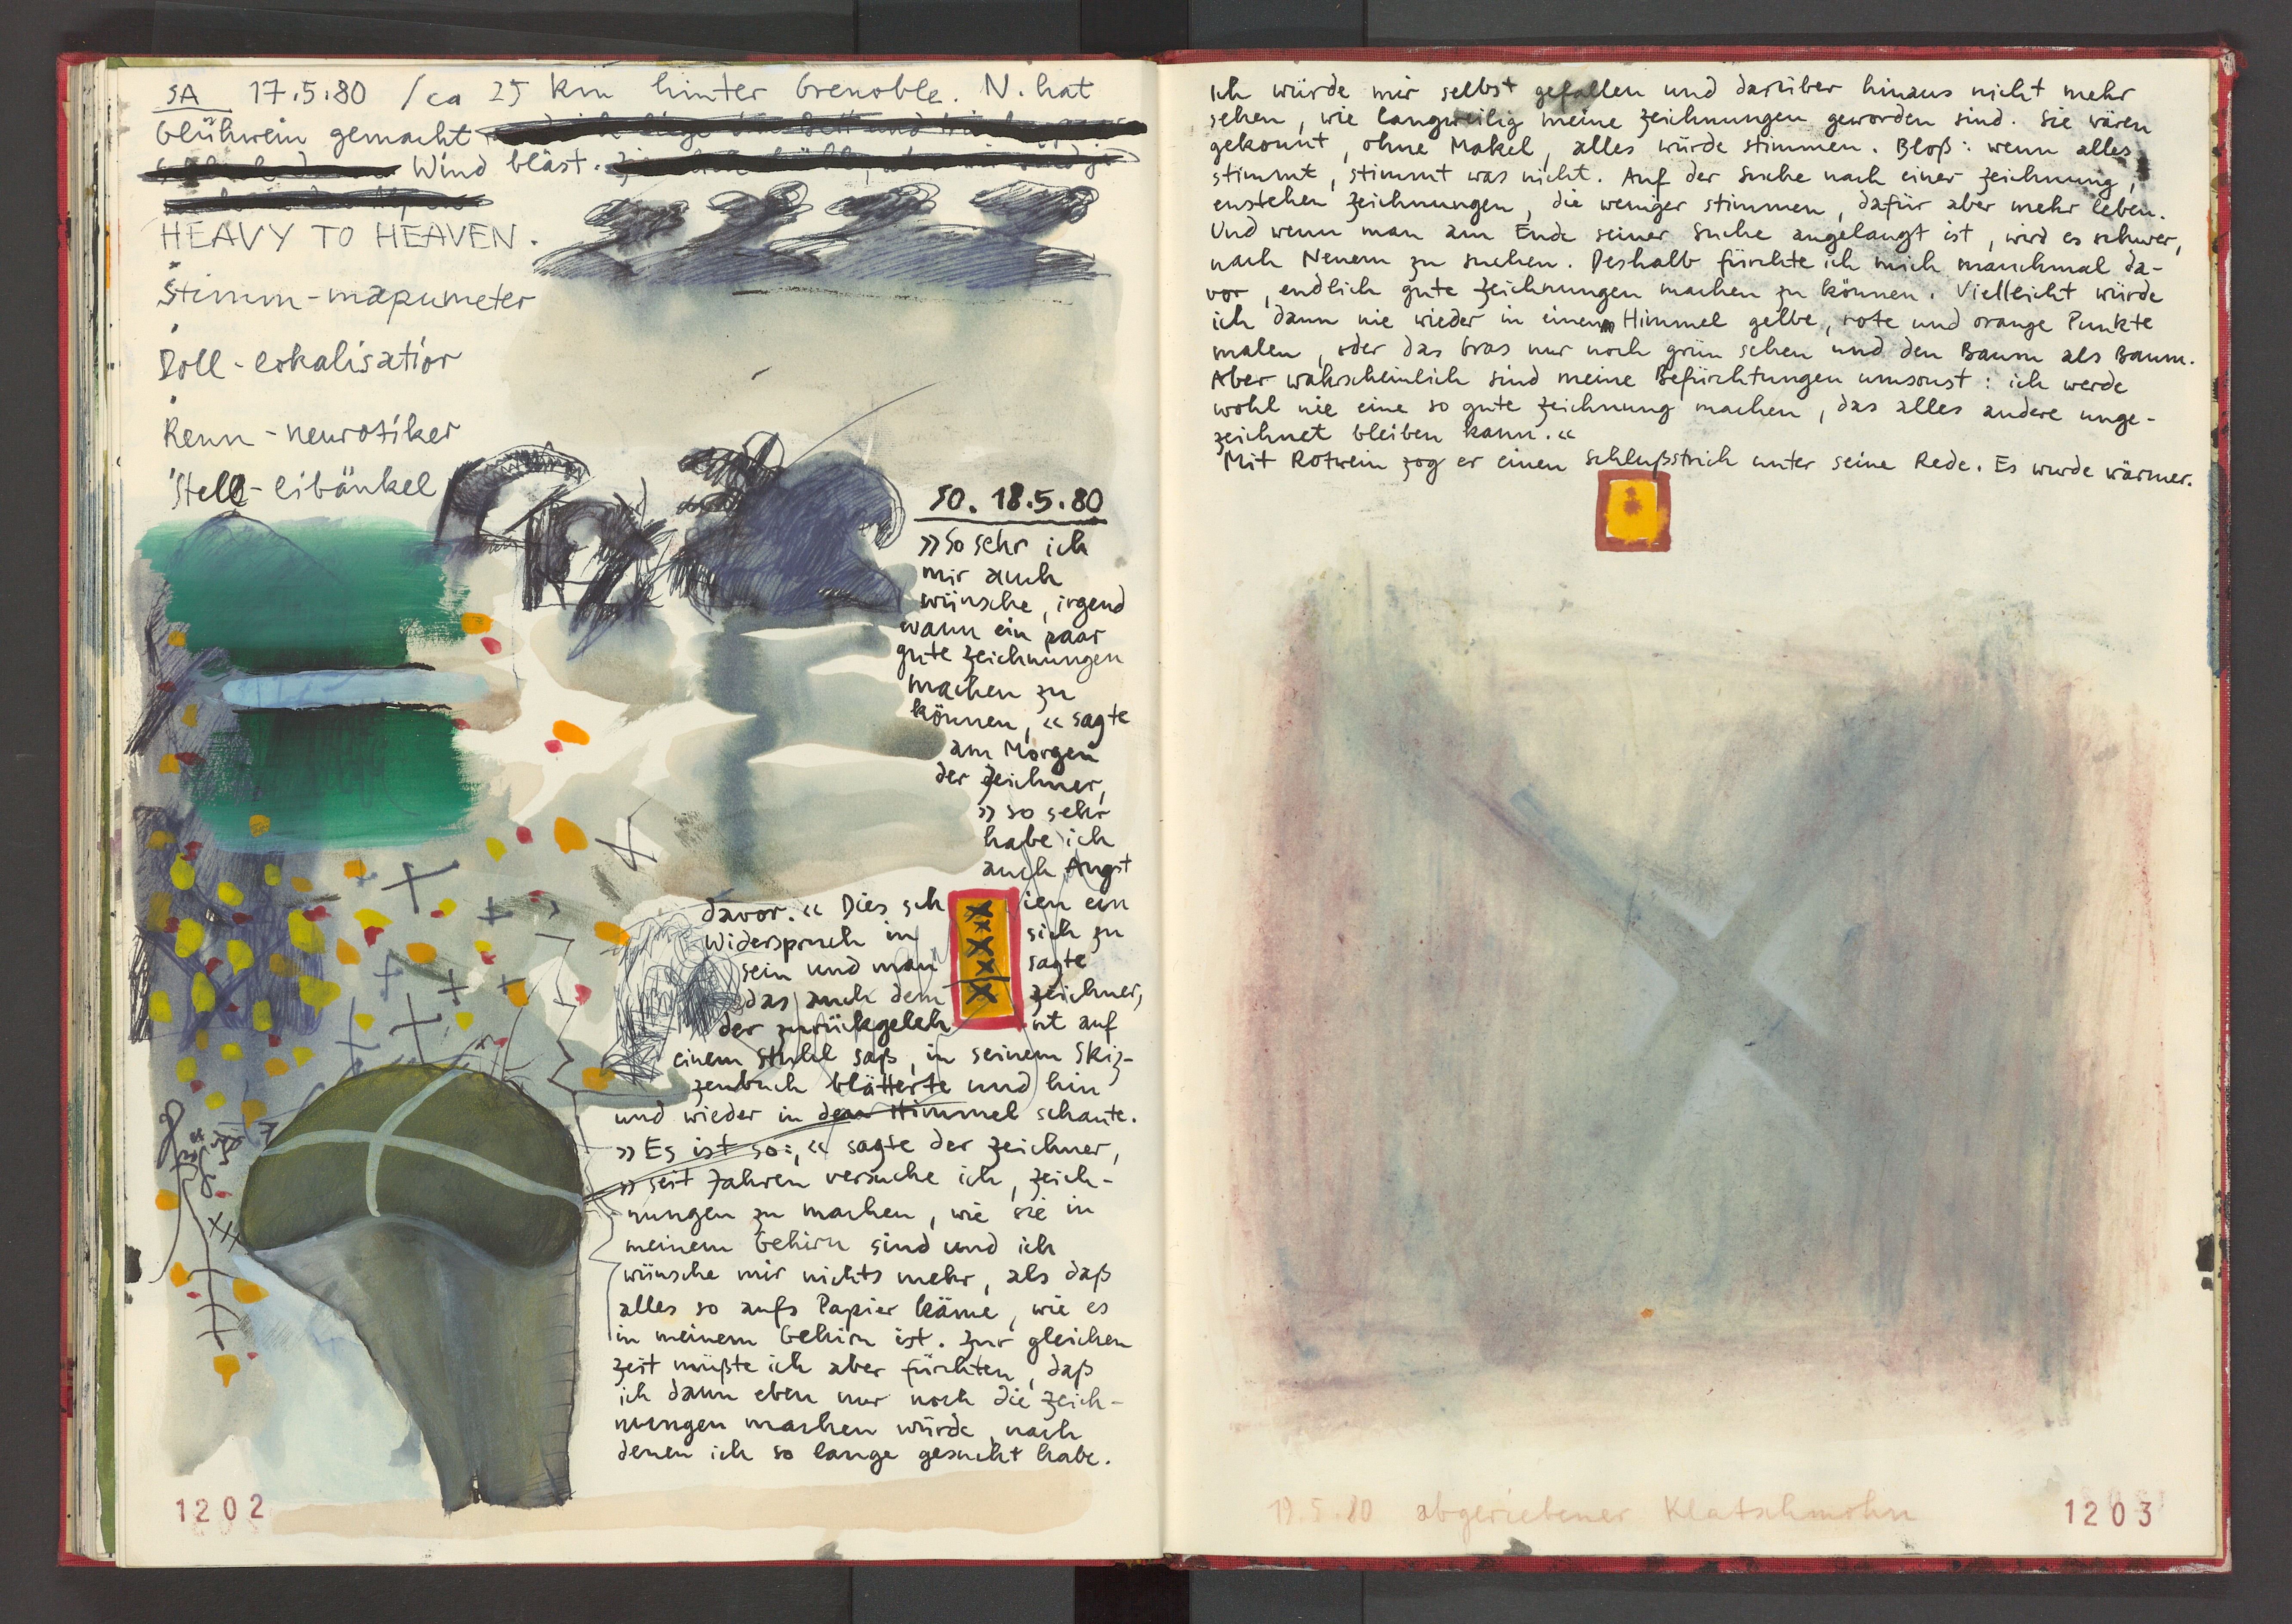 SA 17.5.80 / ca 25 km hinter Grenoble. N. hat
Glühwein gemacht
Wind bläst.
HEAVY TO HEAVEN.
Stimm-mapumeter
Roll-lokalisatior
Renn-neurotiker
Stell-libänkel
SO. 18.5.80
»So sehr ich
mir auch
wünsche, irgend
wann ein paar
gute Zeichnungen
machen zu
können,« sagte
am Morgen
der Zeichner,
»so sehr
habe ich
auch Angst
davor.« Dies schien ein
Widerspruch in sich zu
sein und man sagte
das auch dem Zeichner,
der zurückgelehnt auf
einem Stuhl saß, in seinem Skiz-
zenbuch blätterte und hin
und wieder in den Himmel schaute.
»Es ist so:,« sagte der Zeichner,
»seit Jahren versuche ich, Zeich-
nungen zu machen, wie sie in
meinem Gehirn sind und ich
wünsche mir nichts mehr, als daß
alles so aufs Papier käme, wie es
in meinem Gehirn ist. Zur gleichen
Zeit müßte ich aber fürchten, daß
ich dann eben nur noch die Zeich-
nungen machen würde, nach
denen ich so lange gesucht habe.
1202
Ich würde mir selbst gefallen und darüber hinaus nicht mehr
sehen, wie langweilig meine Zeichnungen geworden sind. Sie wären
gekonnt, ohne Makel, alles würde stimmen. Bloß: wenn alles
stimmt, stimmt was nicht. Auf der Suche nach einer Zeichnung,
enstehen Zeichnungen, die weniger stimmen, dafür aber mehr leben.
Und wenn man am Ende seiner Suche angelangt ist, wird es schwer,
nach Neuem zu suchen. Deshalb fürchte ich mich manchmal da-
vor, endlich gute Zeichnungen machen zu können. Vielleicht würde
ich dann nie wieder in einem Himmel gelbe, rote und orange Punkte
malen, oder das Gras nur noch grün sehen und den Baum als Baum.
Aber wahrscheinlich sind meine Befürchtungen umsonst: ich werde
wohl nie eine so gute Zeichnung machen, das alles andere unge-
zeichnet bleiben kann.«
Mit Rotwein zog er einen Schlußstrich unter seine Rede. Es wurde wärmer.
19.5.80 abgeriebener Klatschmohn
1203